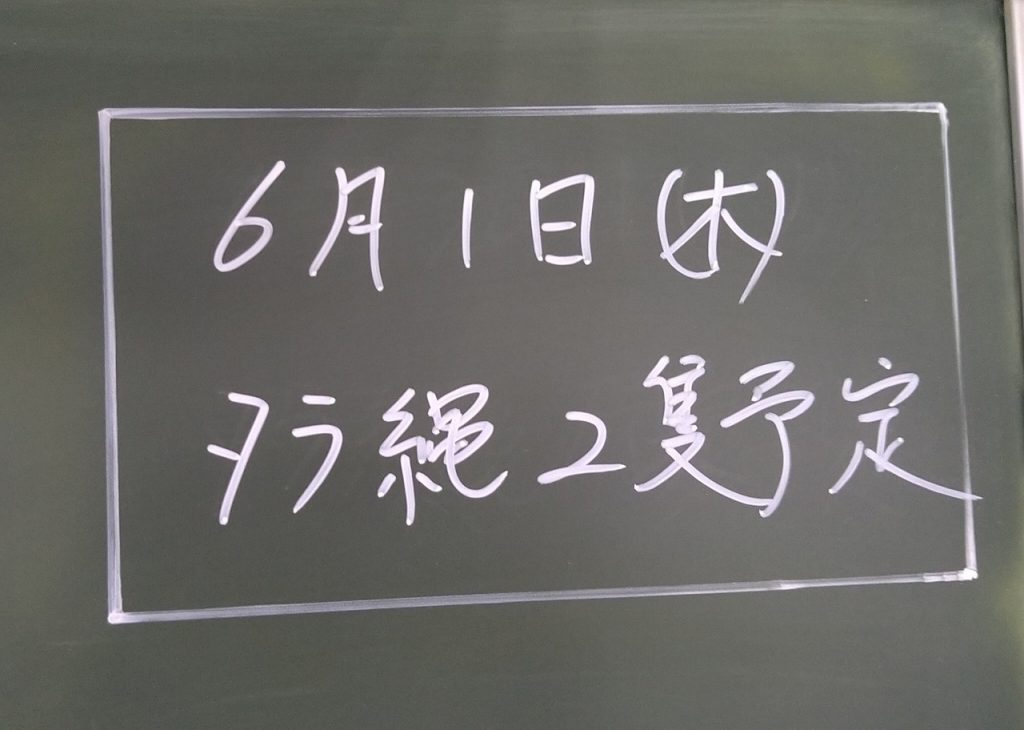 6月1日(木)
タラ縄2隻予定